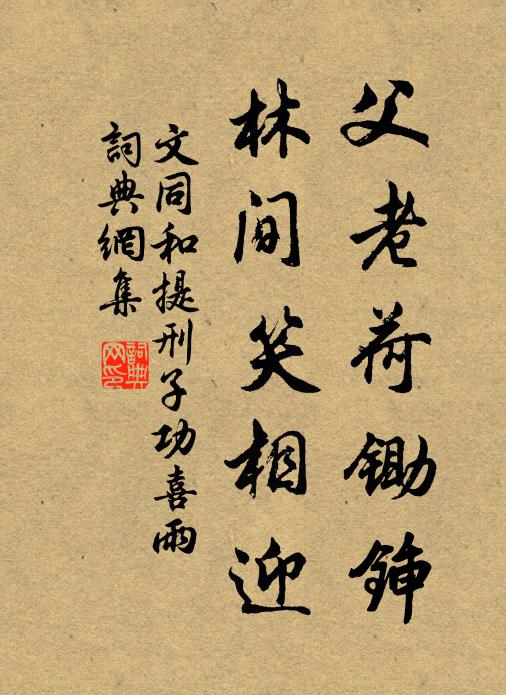 父老荷鋤鍤
林間笑相迎
文同和提刑子功喜雨
詞典網集
詞典網印